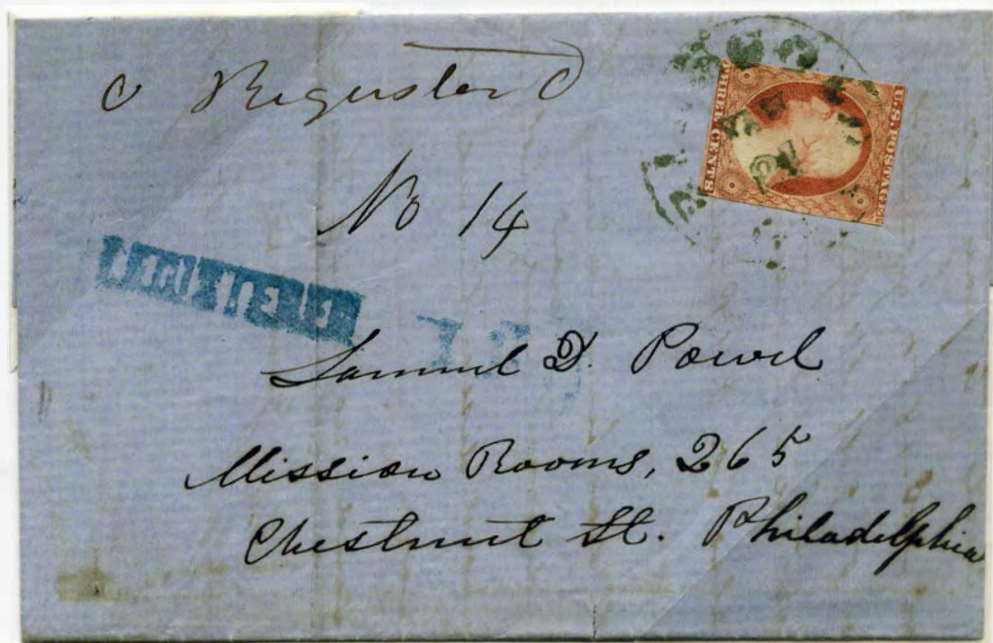 Registered
No 14
U.S. POSTAGE
THREE CENTS
Samuel D. Powel
Mission Rooms, 265
Chestnut St. Philadelphia